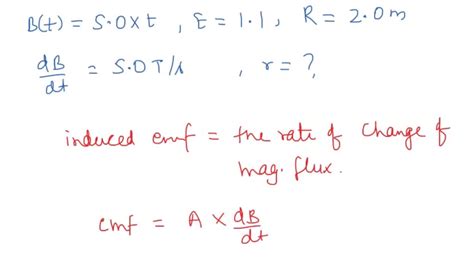 B(t) = 5.0 x t , E = 1.1 , R = 2.0 m
dB/dt = 5.0 T/s , r = ?
induced emf = the rate of change of
mag. flux.
emf = A x dB/dt